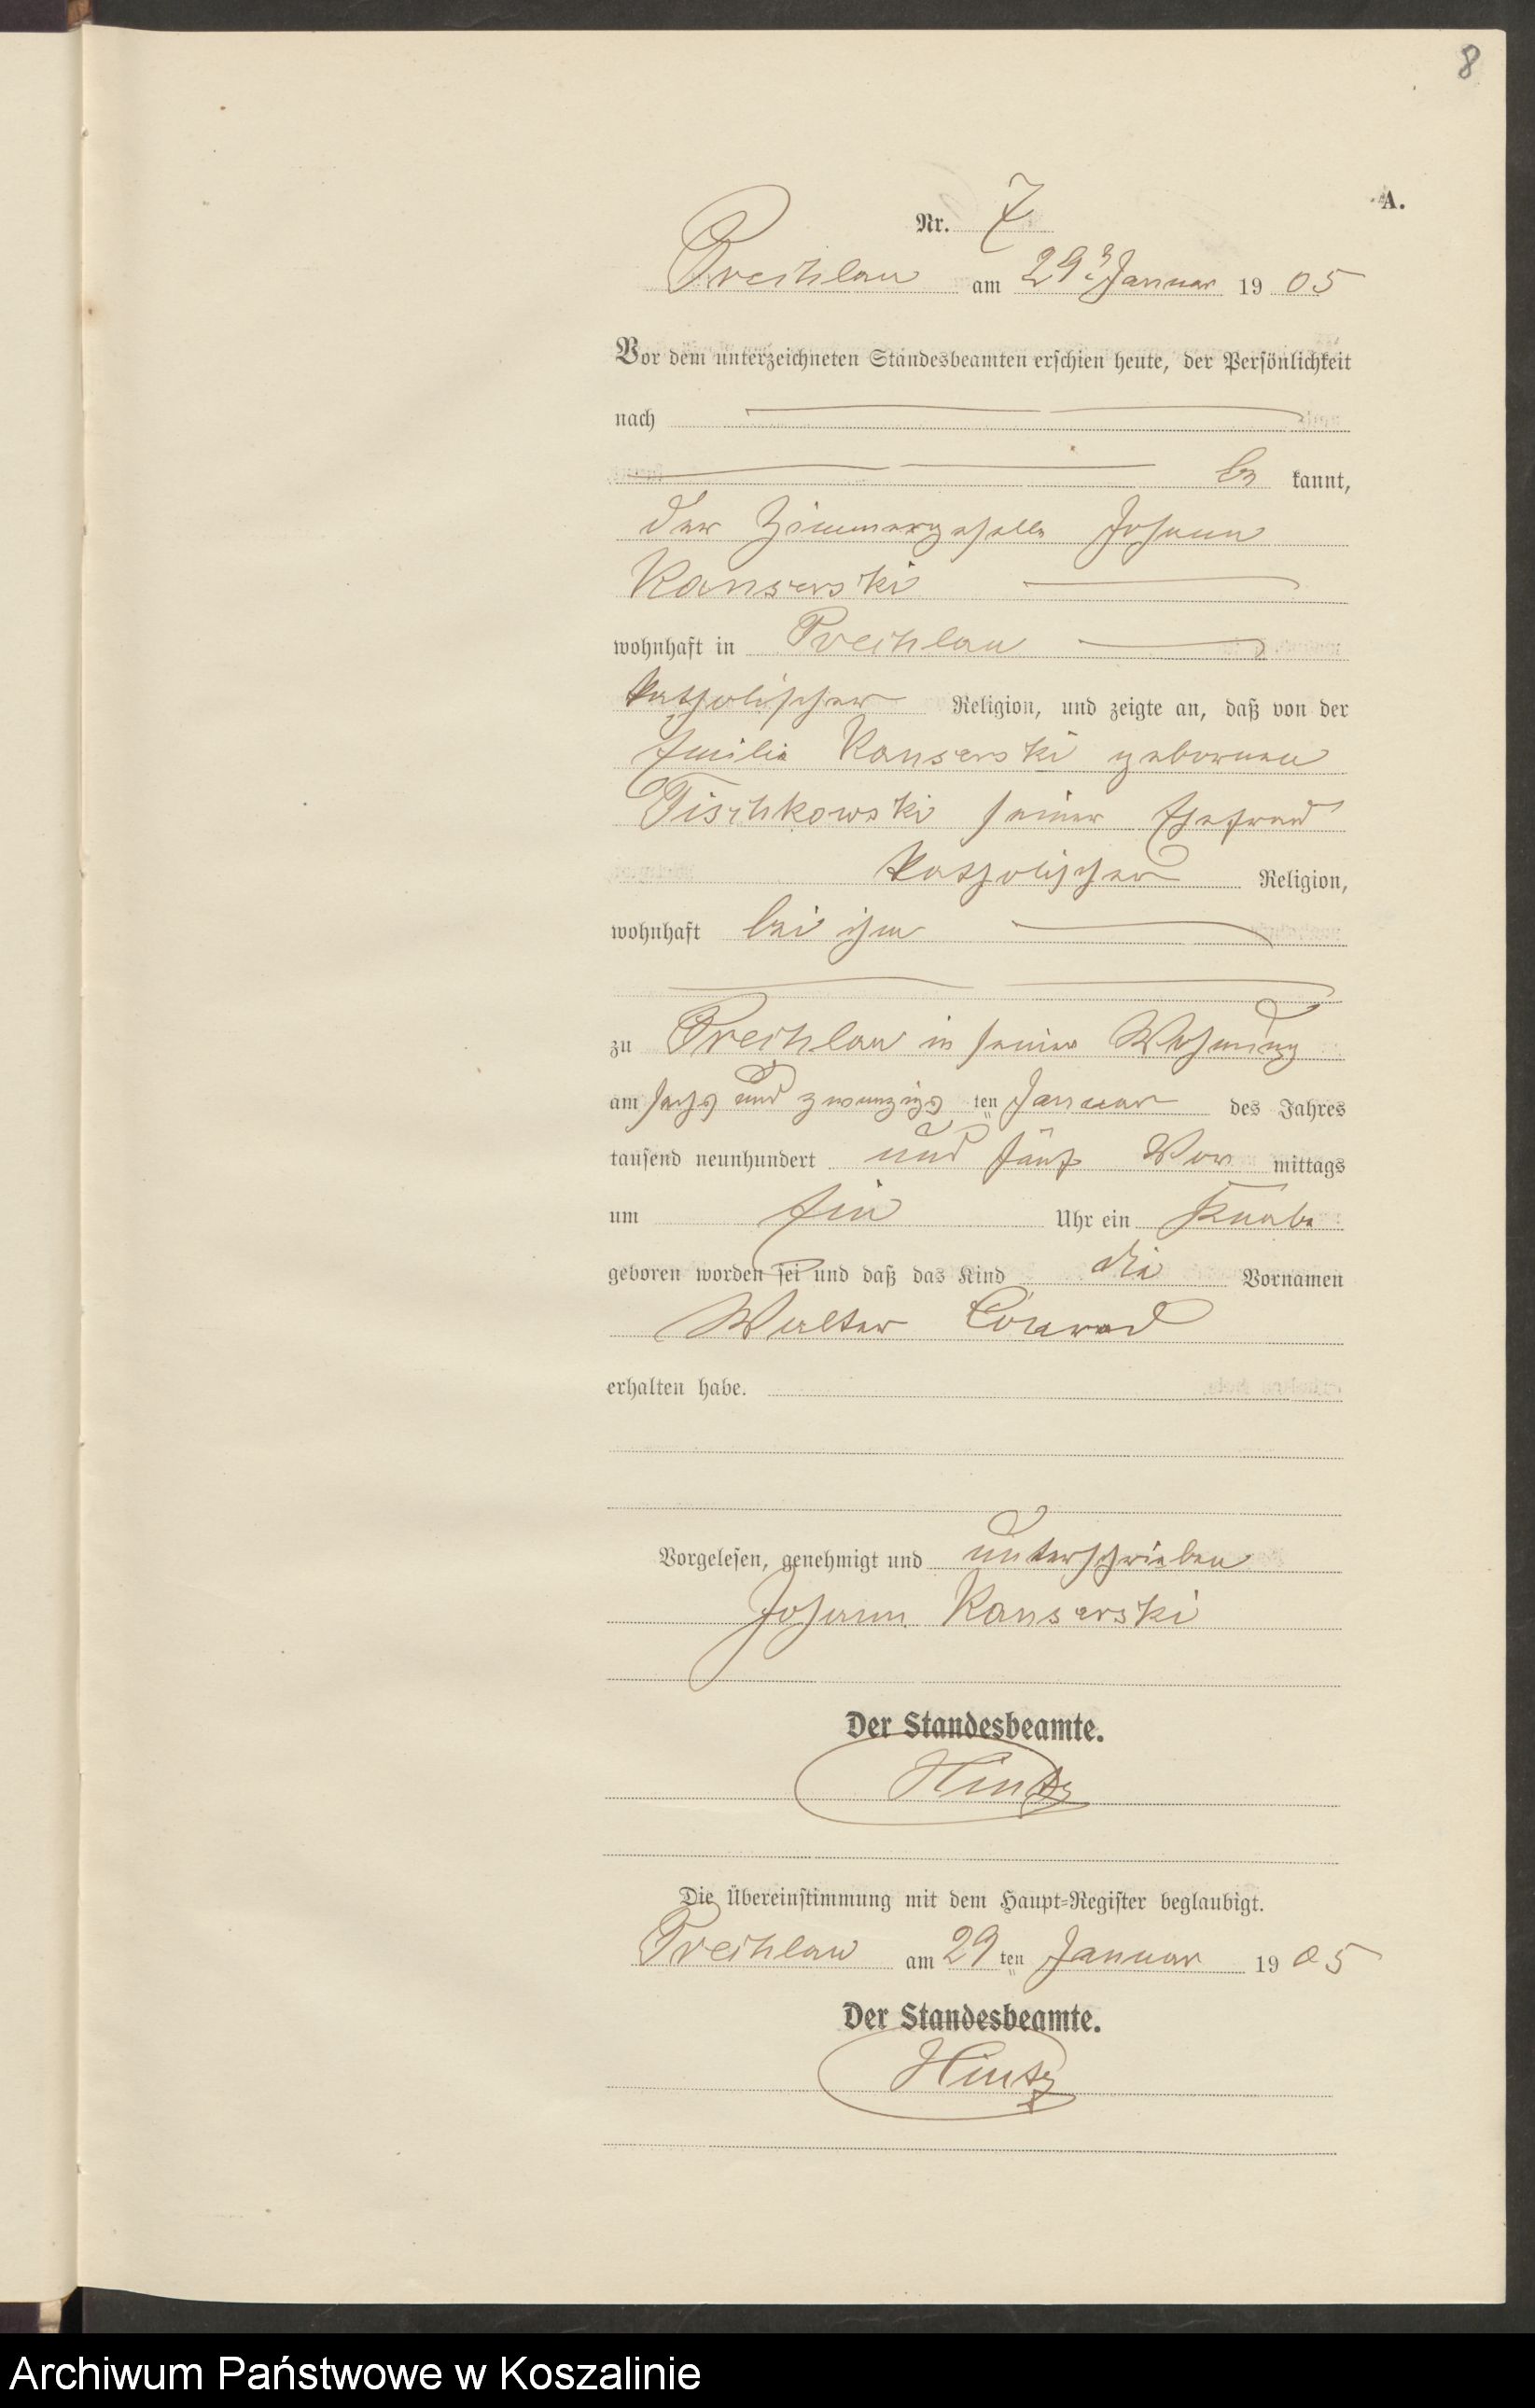 8
A.
Nr. 7
Prechlau am 29. Januar 1905
Vor dem unterzeichneten Standesbeamten erschien heute, der Persönlichkeit
nach
be kannt,
der Zimmergeselle Johann
Kanserski
wohnhaft in Prechlau
katholischer Religion, und zeigte an, daß von der
Emilie Kanserski geborenen
Tischkowski seiner Ehefrau
katholischer Religion,
wohnhaft bei ihm
zu Prechlau in seiner Wohnung
am sechs und zwanzigs ten Januar des Jahres
tausend neunhundert und fünf Vor mittags
um Ein Uhr ein Knabe
geboren worden sei und daß das Kind die Vornamen
Walter Conrad
erhalten habe.
Vorgelesen, genehmigt und unterschrieben
Johann Kanserski
Der Standesbeamte.
Hintz
Die Übereinstimmung mit dem Haupt-Register beglaubigt.
Prechlau am 29 ten Januar 1905
Der Standesbeamte.
Hintz
Archiwum Państwowe w Koszalinie